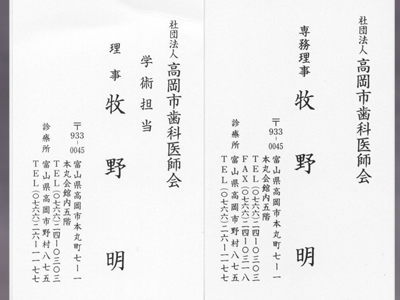 社団法人 高岡市歯科医師会
専務理事 牧野 明
〒933-0045 富山県高岡市本丸町七-一
本丸会館内五階
TEL(〇七六六)二四-〇三〇三
FAX(〇七六六)二四-〇三〇二
診療所 富山県高岡市野村八七五
TEL(〇七六六)二六-一一七七
社団法人 高岡市歯科医師会
学術担当
理事 牧野 明
〒933-0045 富山県高岡市本丸町七-一
本丸会館内五階
TEL(〇七六六)二四-〇三〇三
診療所 富山県高岡市野村八七五
TEL(〇七六六)二六-一一七七